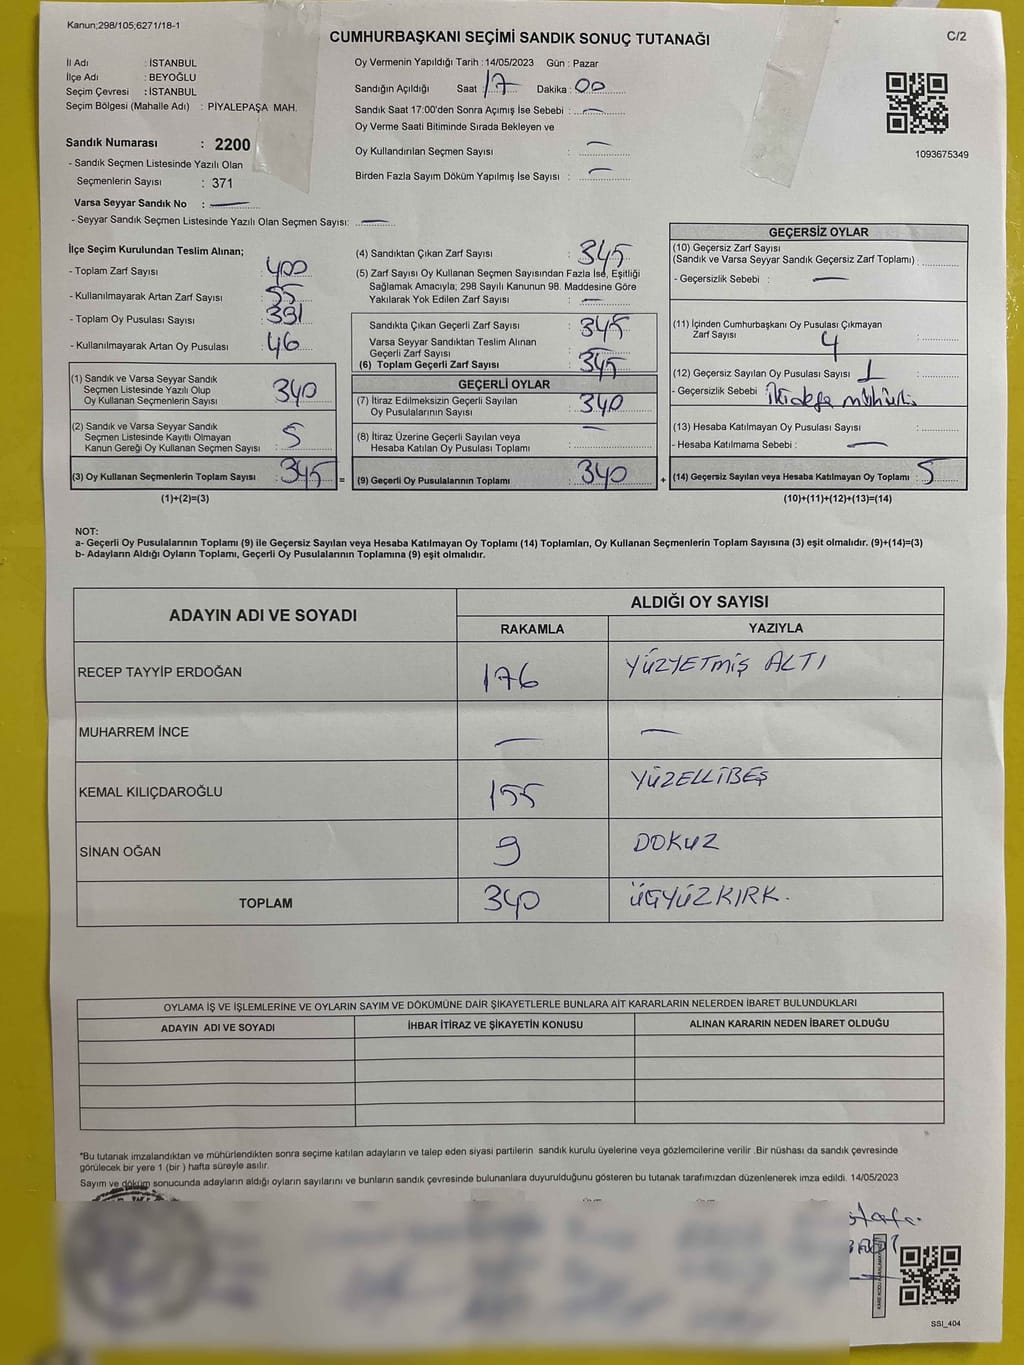 Kanun;298/105;6271/18-1
CUMHURBAŞKANI SEÇİMİ SANDIK SONUÇ TUTANAĞI
C/2
İl Adı : İSTANBUL
İlçe Adı : BEYOĞLU
Seçim Çevresi : İSTANBUL
Seçim Bölgesi (Mahalle Adı) : PİYALEPAŞA MAH.
Sandık Numarası : 2200
- Sandık Seçmen Listesinde Yazılı Olan
Seçmenlerin Sayısı : 371
Varsa Seyyar Sandık No : —
- Seyyar Sandık Seçmen Listesinde Yazılı Olan Seçmen Sayısı: —
Oy Vermenin Yapıldığı Tarih : 14/05/2023 Gün : Pazar
Sandığın Açıldığı Saat : 17 Dakika : 00
Sandık Saat 17:00'den Sonra Açımış İse Sebebi : —
Oy Verme Saati Bitiminde Sırada Bekleyen ve
Oy Kullandırılan Seçmen Sayısı : —
Birden Fazla Sayım Döküm Yapılmış İse Sayısı : —
1093675349
İlçe Seçim Kurulundan Teslim Alınan;
- Toplam Zarf Sayısı : 400
- Kullanılmayarak Artan Zarf Sayısı : 55
- Toplam Oy Pusulası Sayısı : 391
- Kullanılmayarak Artan Oy Pusulası : 46
(1) Sandık ve Varsa Seyyar Sandık
Seçmen Listesinde Yazılı Olup
Oy Kullanan Seçmenlerin Sayısı : 340
(2) Sandık ve Varsa Seyyar Sandık
Seçmen Listesinde Kayıtlı Olmayan
Kanun Gereği Oy Kullanan Seçmen Sayısı : 5
(3) Oy Kullanan Seçmenlerin Toplam Sayısı : 345
(1)+(2)=(3)
(4) Sandıktan Çıkan Zarf Sayısı : 345
(5) Zarf Sayısı Oy Kullanan Seçmen Sayısından Fazla İse, Eşitliği
Sağlamak Amacıyla; 298 Sayılı Kanunun 98. Maddesine Göre
Yakılarak Yok Edilen Zarf Sayısı : —
Sandıkta Çıkan Geçerli Zarf Sayısı : 345
Varsa Seyyar Sandıktan Teslim Alınan
Geçerli Zarf Sayısı :
(6) Toplam Geçerli Zarf Sayısı : 345
=
GEÇERLİ OYLAR
(7) İtiraz Edilmeksizin Geçerli Sayılan
Oy Pusulalarının Sayısı : 340
(8) İtiraz Üzerine Geçerli Sayılan veya
Hesaba Katılan Oy Pusulası Toplamı : —
(9) Geçerli Oy Pusulalarının Toplamı : 340
+
GEÇERSİZ OYLAR
(10) Geçersiz Zarf Sayısı
(Sandık ve Varsa Seyyar Sandık Geçersiz Zarf Toplamı) :
- Geçersizlik Sebebi : —
(11) İçinden Cumhurbaşkanı Oy Pusulası Çıkmayan
Zarf Sayısı : 4
(12) Geçersiz Sayılan Oy Pusulası Sayısı : 1
- Geçersizlik Sebebi : İki defa mühürlü
(13) Hesaba Katılmayan Oy Pusulası Sayısı :
- Hesaba Katılmama Sebebi : —
(14) Geçersiz Sayılan veya Hesaba Katılmayan Oy Toplamı : 5
(10)+(11)+(12)+(13)=(14)
NOT:
a- Geçerli Oy Pusulalarının Toplamı (9) ile Geçersiz Sayılan veya Hesaba Katılmayan Oy Toplamı (14) Toplamları, Oy Kullanan Seçmenlerin Toplam Sayısına (3) eşit olmalıdır. (9)+(14)=(3)
b- Adayların Aldığı Oyların Toplamı, Geçerli Oy Pusulalarının Toplamına (9) eşit olmalıdır.
ADAYIN ADI VE SOYADI
ALDIĞI OY SAYISI
RAKAMLA YAZIYLA
RECEP TAYYİP ERDOĞAN 176 YÜZYETMİŞ ALTI
MUHARREM İNCE — —
KEMAL KILIÇDAROĞLU 155 YÜZELLİBEŞ
SİNAN OĞAN 9 DOKUZ
TOPLAM 340 ÜÇYÜZKIRK.
OYLAMA İŞ VE İŞLEMLERİNE VE OYLARIN SAYIM VE DÖKÜMÜNE DAİR ŞİKAYETLERLE BUNLARA AİT KARARLARIN NELERDEN İBARET BULUNDUKLARI
ADAYIN ADI VE SOYADI İHBAR İTİRAZ VE ŞİKAYETİN KONUSU ALINAN KARARIN NEDEN İBARET OLDUĞU
*Bu tutanak imzalandıktan ve mühürlendikten sonra seçime katılan adayların ve talep eden siyasi partilerin sandık kurulu üyelerine veya gözlemcilerine verilir .Bir nüshası da sandık çevresinde
görülecek bir yere 1 (bir ) hafta süreyle asılır.
Sayım ve döküm sonucunda adayların aldığı oyların sayılarını ve bunların sandık çevresinde bulunanlara duyurulduğunu gösteren bu tutanak tarafımızdan düzenlenerek imza edildi. 14/05/2023
SSI_404